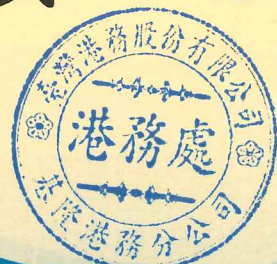 臺灣港務股份有限公司
港務處
基隆港務分公司